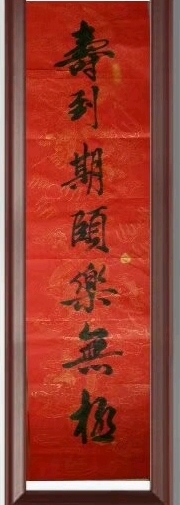 壽到期頤樂無極